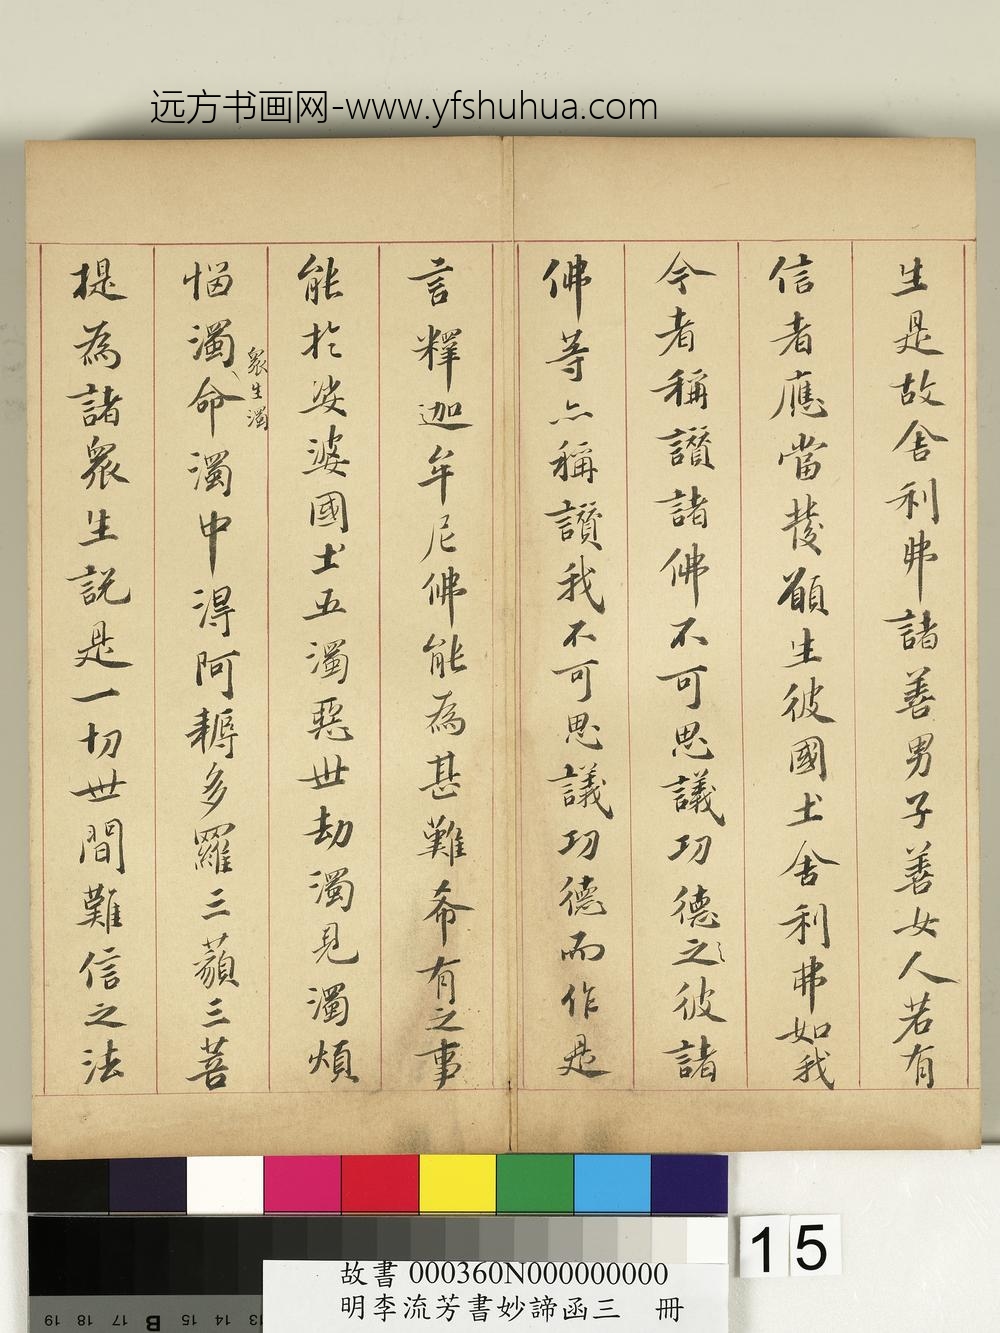 远方书画网-www.yfshuhua.com
生是故舍利弗諸善男子善女人若有
信者應當發願生彼國土舍利弗如我
今者稱讚諸佛不可思議功德之彼諸
佛等亦稱讚我不可思議功德而作是
言釋迦牟尼佛能為甚難希有之事
能於娑婆國土五濁惡世劫濁見濁煩
惱濁命濁中得阿耨多羅三藐三菩
眾生濁
提為諸眾生說是一切世間難信之法
15
故書 000360N000000000
明李流芳書妙諦函三 冊
19 18 17 B 15 14 13